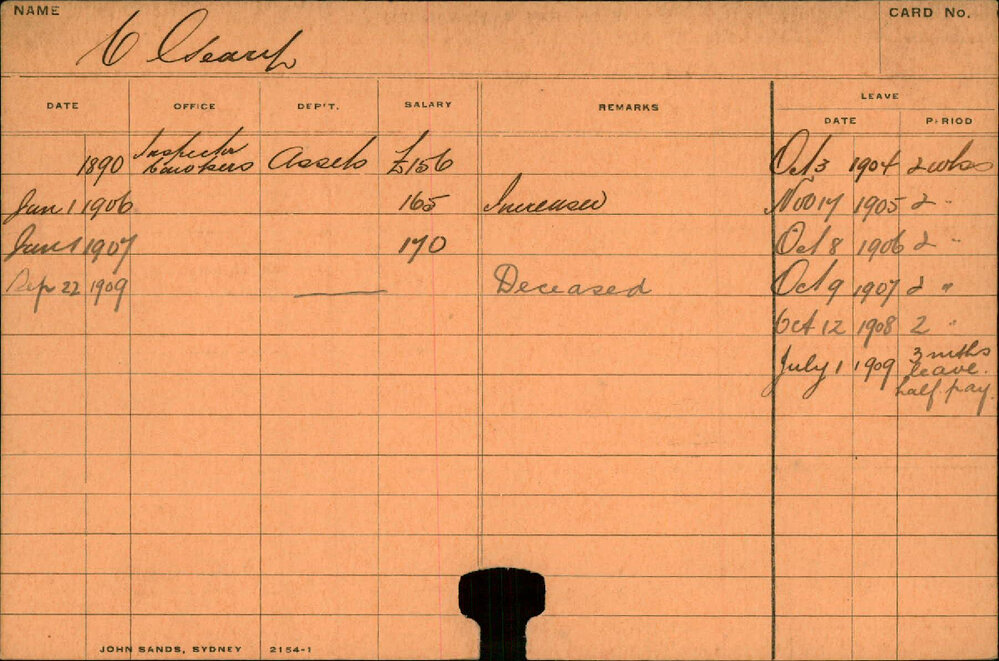 NAME
CARD No.
C
LEAVE
DATE OFFICE DEP'T. SALARY REMARKS DATE PERIOD
Inspector
1890 Assets £156 Oct 3 1904 2 wks
Jan 1 1906 165 Increased Nov 14 1905 2 "
Jan 1 1907 170 Oct 8 1906 2 "
Sep 22 1909 Deceased Oct 9 1907 2 "
Oct 12 1908 2 "
July 1 1909 3 mths
leave.
half pay.
JOHN SANDS, SYDNEY 2154-1